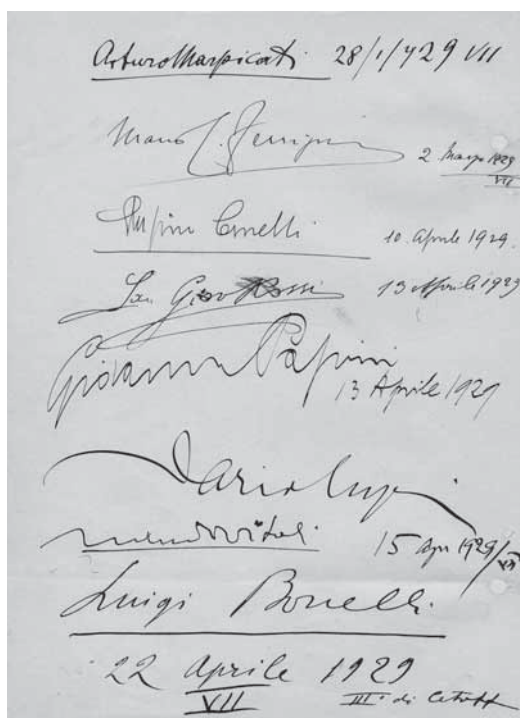 Arturo Marpicati 28/1/929 VII
2 Marzo 1929
VII
10 Aprile 1929.
San Gio Rossi 13 Aprile 1929
Giovanni Papini
13 Aprile 1929
Dario Lupi
15 Apr 1929/VII
Luigi Bonelli
22 Aprile 1929
VII III° di